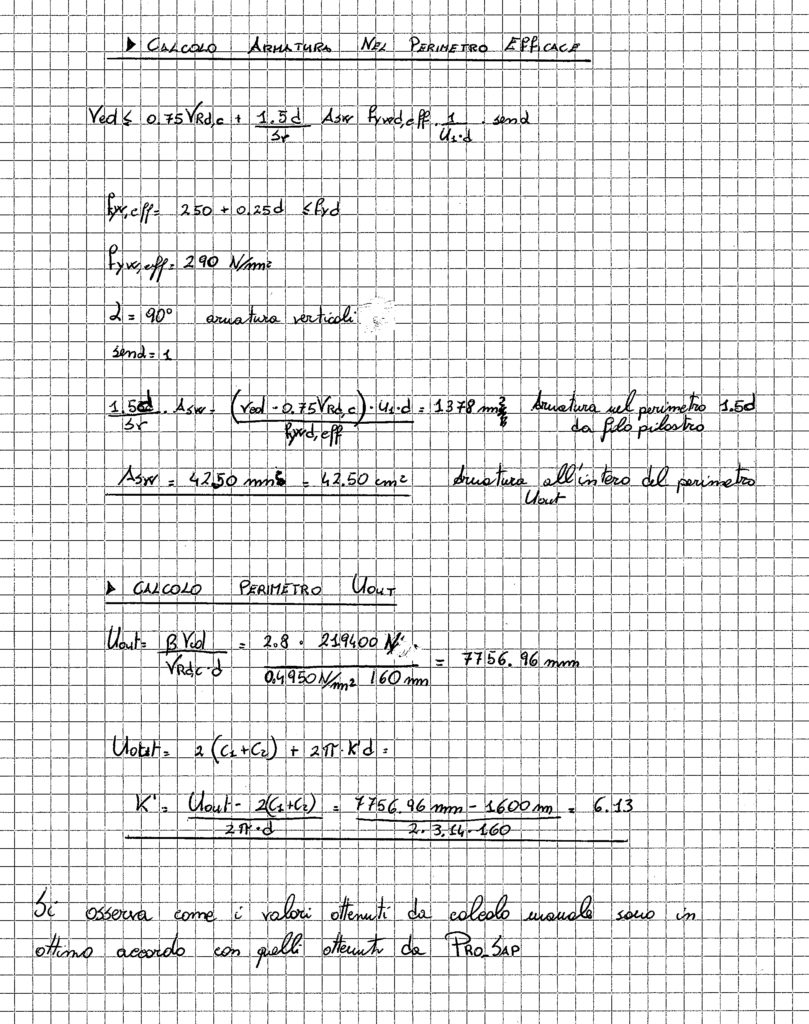 ▶ CALCOLO ARMATURA NEL PERIMETRO EFFICACE
Ved ≤ 0.75 VRd,c + 1.5d/sr Asw fywd,eff · 1/(u1·d) · senα
fyw,eff = 250 + 0.25d ≤ fyd
fyw,eff = 290 N/mm²
α = 90° armatura verticali
senα = 1
1.5d/sr · Asw = (ved - 0.75 VRd,c) · u1·d / fywd,eff = 1378 mm² Armatura nel perimetro 1.5d
da filo pilastro
Asw = 42.50 mm² = 42.50 cm² Armatura all'intero del perimetro
Uout
▶ CALCOLO PERIMETRO UOUT
Uout = β Ved / (VRd,c · d) = 2.8 · 219400 N / (0.4950 N/mm² 160 mm) = 7756.96 mm
Uout = 2 (C1+C2) + 2π·K'd =
K' = (Uout - 2(C1+C2)) / (2π·d) = (7756.96 mm - 1600 m) / (2·3.14·160) = 6.13
Si osserva come i valori ottenuti da calcolo manuale sono in
ottimo accordo con quelli ottenuti da PRO_SAP